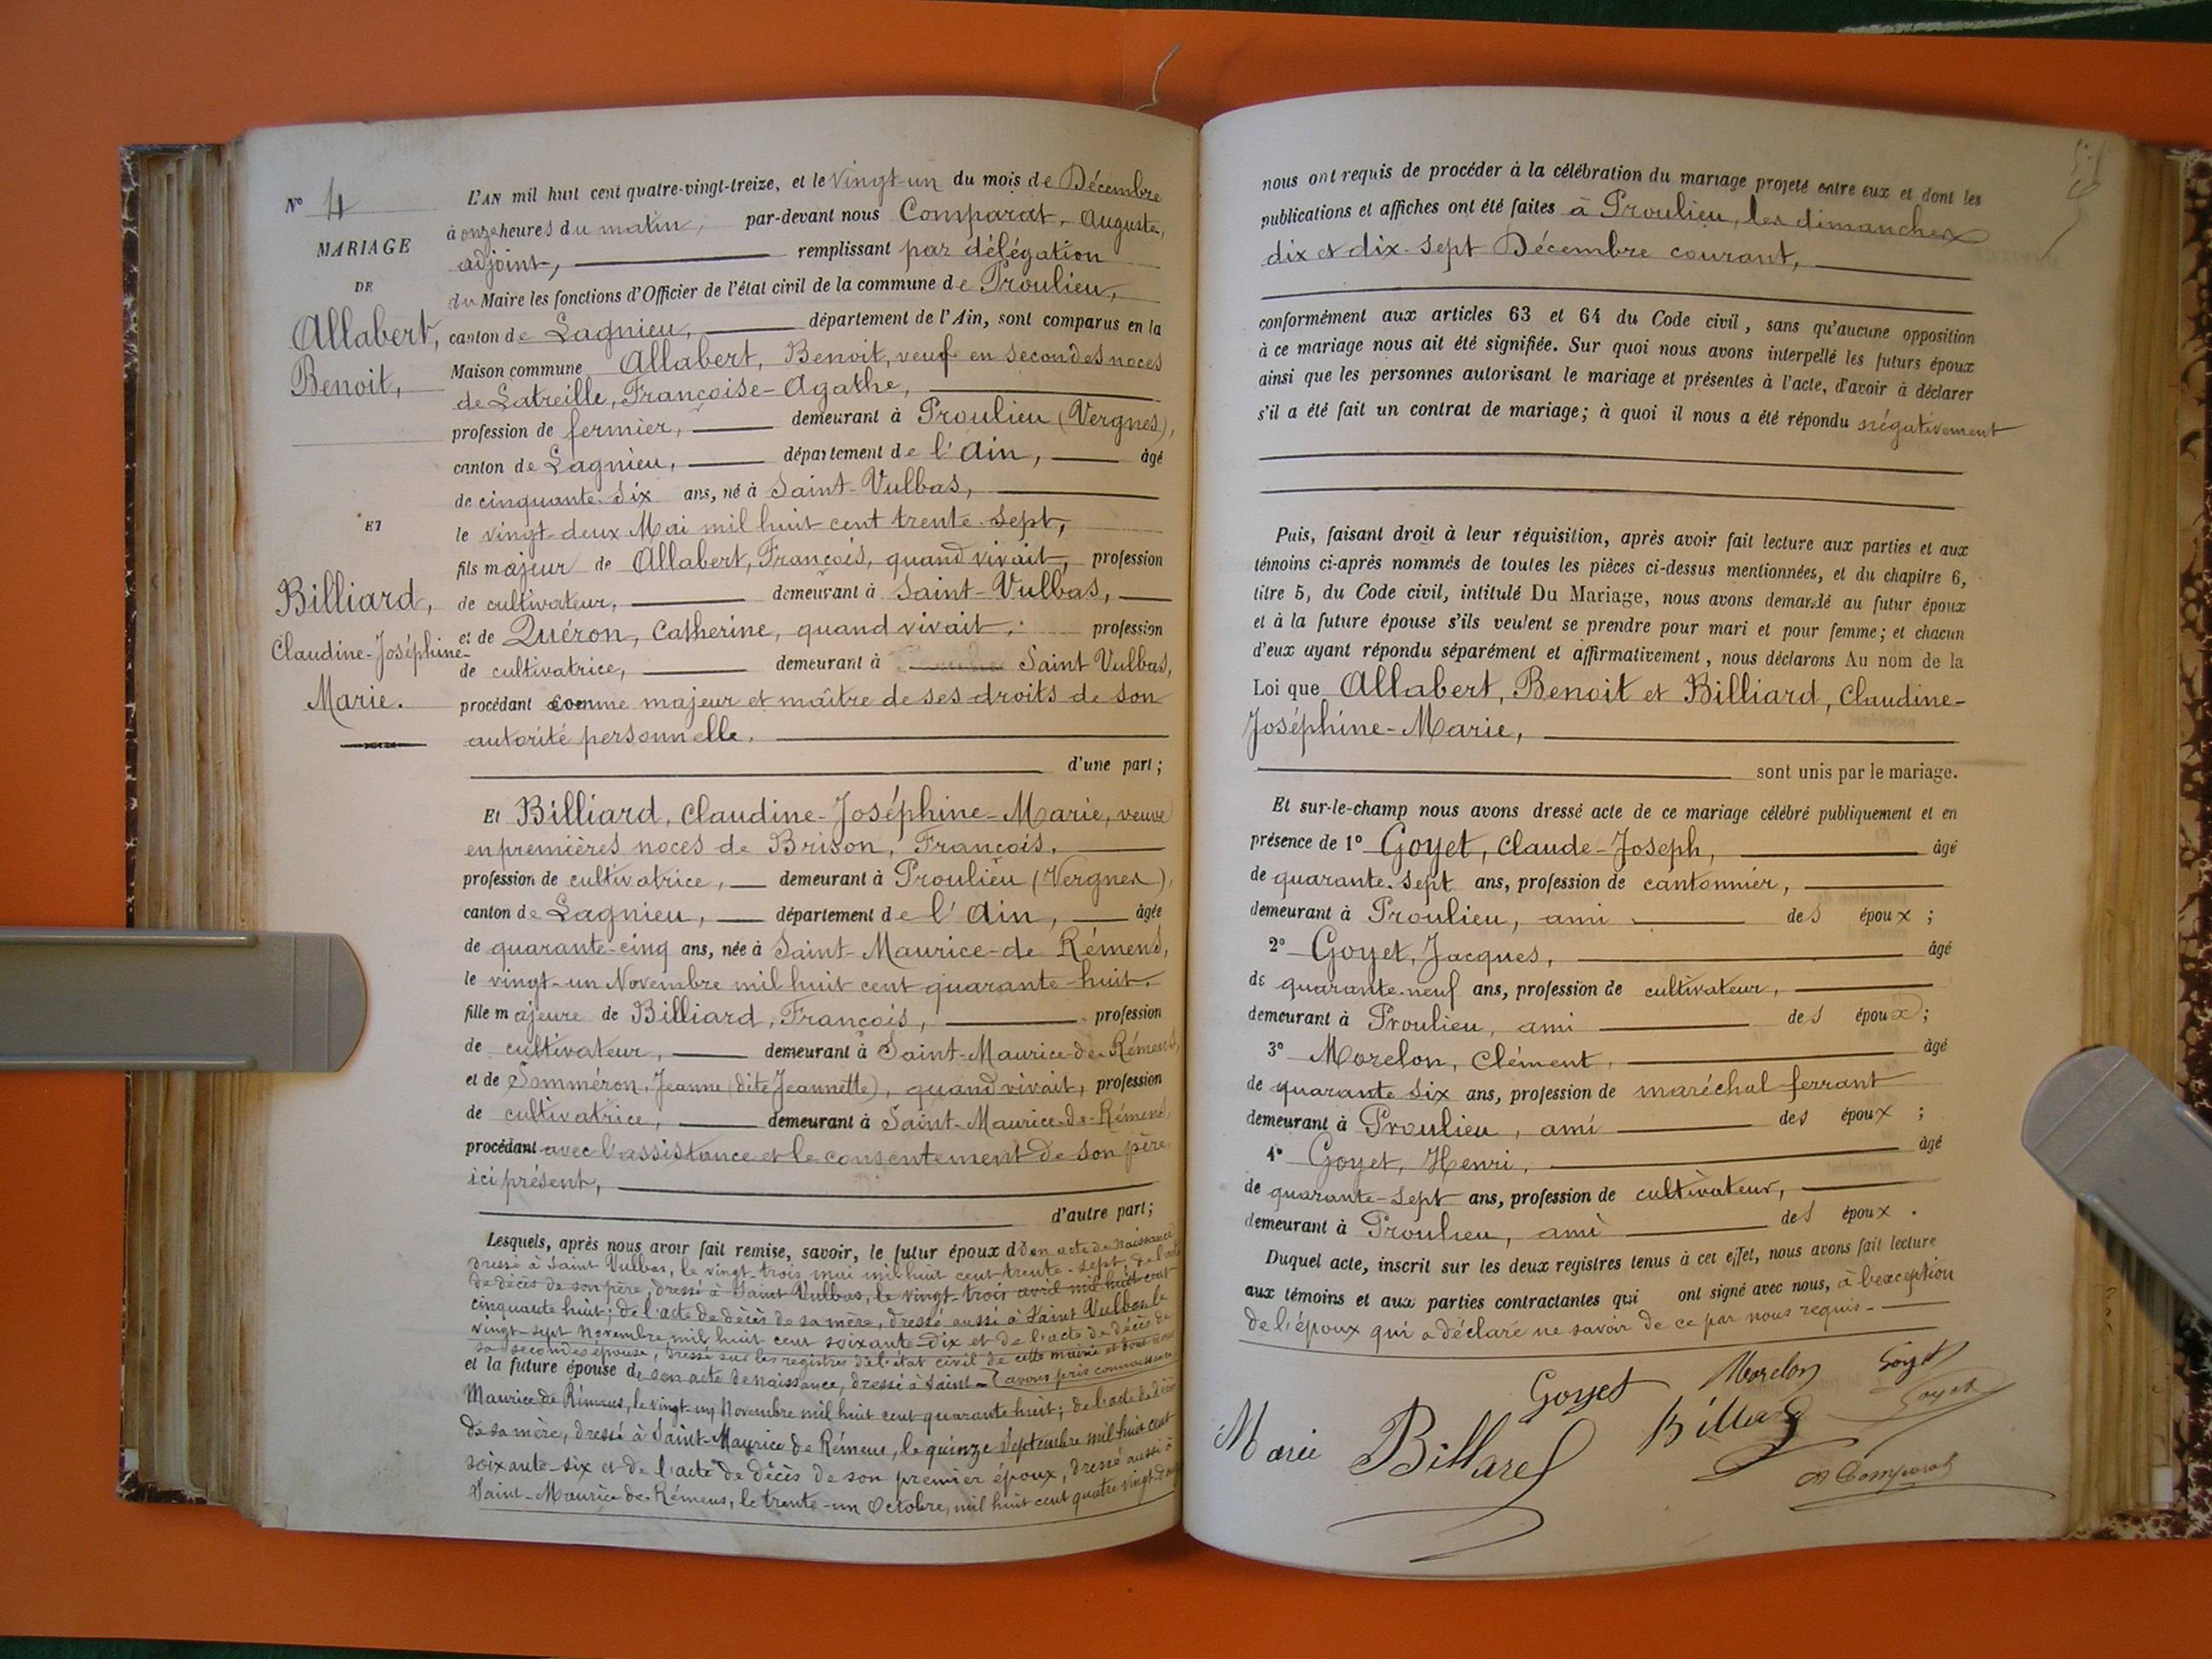 N° 4
MARIAGE
DE
Allabert,
Benoit,
ET
Billiard,
Claudine-Joséphine-
Marie.
L'AN mil huit cent quatre-vingt-treize, et le vingt-un du mois de Décembre
à onze heures du matin, par-devant nous Comparat, Auguste,
adjoint, remplissant par délégation
du Maire les fonctions d'Officier de l'état civil de la commune de Proulieu,
canton de Lagnieu, département de l'Ain, sont comparus en la
Maison commune Allabert, Benoit, veuf en secondes noces
de Latreille, Françoise-Agathe,
profession de fermier, demeurant à Proulieu (Vergnes),
canton de Lagnieu, département de l'Ain, âgé
de cinquante-six ans, né à Saint-Vulbas,
le vingt-deux Mai mil huit cent trente-sept,
fils majeur de Allabert, François, quand vivait, profession
de cultivateur, demeurant à Saint-Vulbas,
et de Quéron, Catherine, quand vivait, profession
de cultivatrice, demeurant à Saint Vulbas,
procédant comme majeur et maître de ses droits de son
autorité personnelle.
d'une part;
Et Billiard, Claudine-Joséphine-Marie, veuve
en premières noces de Brison, François,
profession de cultivatrice, demeurant à Proulieu (Vergnes),
canton de Lagnieu, département de l'Ain, âgée
de quarante-cinq ans, née à Saint-Maurice-de Rémens,
le vingt-un Novembre mil huit cent quarante-huit.
fille majeure de Billiard, François, profession
de cultivateur, demeurant à Saint-Maurice-de-Rémens,
et de Somméron, Jeanne (dite Jeannette), quand vivait, profession
de cultivatrice, demeurant à Saint-Maurice-de-Rémens,
procédant avec l'assistance et le consentement de son père,
ici présent,
d'autre part;
Lesquels, après nous avoir fait remise, savoir, le futur époux de son acte de naissance
dressé à Saint Vulbas, le vingt-trois mai mil huit cent trente-sept; de l'acte
de décès de son père, dressé à Saint Vulbas, le vingt-trois avril mil huit cent
cinquante huit; de l'acte de décès de sa mère, dressé aussi à Saint Vulbas le
vingt-sept Novembre mil huit cent soixante-dix et de l'acte de décès de
sa secondes épouse, dressé sur les registres de l'état civil de cette mairie et dont nous
et la future épouse de son acte de naissance, dressé à Saint- (avons pris connaissance
Maurice de Rémens, le vingt-un Novembre mil huit cent quarante huit; de l'acte de décès
de sa mère, dressé à Saint-Maurice de Rémens, le quinze Septembre mil huit cent
soixante-six et de l'acte de décès de son premier époux, dressé aussi à
Saint-Maurice de Rémens, le trente-un Octobre, mil huit cent quatre vingt
nous ont requis de procéder à la célébration du mariage projeté entre eux et dont les
publications et affiches ont été faites à Proulieu, les dimanches
dix et dix-sept Décembre courant,
conformément aux articles 63 et 64 du Code civil, sans qu'aucune opposition
à ce mariage nous ait été signifiée. Sur quoi nous avons interpellé les futurs époux
ainsi que les personnes autorisant le mariage et présentes à l'acte, d'avoir à déclarer
s'il a été fait un contrat de mariage; à quoi il nous a été répondu négativement
Puis, faisant droit à leur réquisition, après avoir fait lecture aux parties et aux
témoins ci-après nommés de toutes les pièces ci-dessus mentionnées, et du chapitre 6,
titre 5, du Code civil, intitulé Du Mariage, nous avons demandé au futur époux
et à la future épouse s'ils veulent se prendre pour mari et pour femme; et chacun
d'eux ayant répondu séparément et affirmativement, nous déclarons Au nom de la
Loi que Allabert, Benoit et Billiard, Claudine-
Joséphine-Marie,
sont unis par le mariage.
Et sur-le-champ nous avons dressé acte de ce mariage célébré publiquement et en
présence de 1° Goyet, Claude-Joseph, âgé
de quarante-sept ans, profession de cantonnier,
demeurant à Proulieu, ami des époux;
2° Goyet, Jacques, âgé
de quarante-neuf ans, profession de cultivateur,
demeurant à Proulieu, ami des époux;
3° Morelon, Clément, âgé
de quarante six ans, profession de maréchal ferrant
demeurant à Proulieu, ami des époux;
4° Goyet, Henri, âgé
de quarante-sept ans, profession de cultivateur,
demeurant à Proulieu, ami des époux.
Duquel acte, inscrit sur les deux registres tenus à cet effet, nous avons fait lecture
aux témoins et aux parties contractantes qui ont signé avec nous, à l'exception
de l'époux qui a déclaré ne savoir de ce par nous requis.
Goyet Morelon Goyet
Goyet
Marie Billard Billard
A Comparat